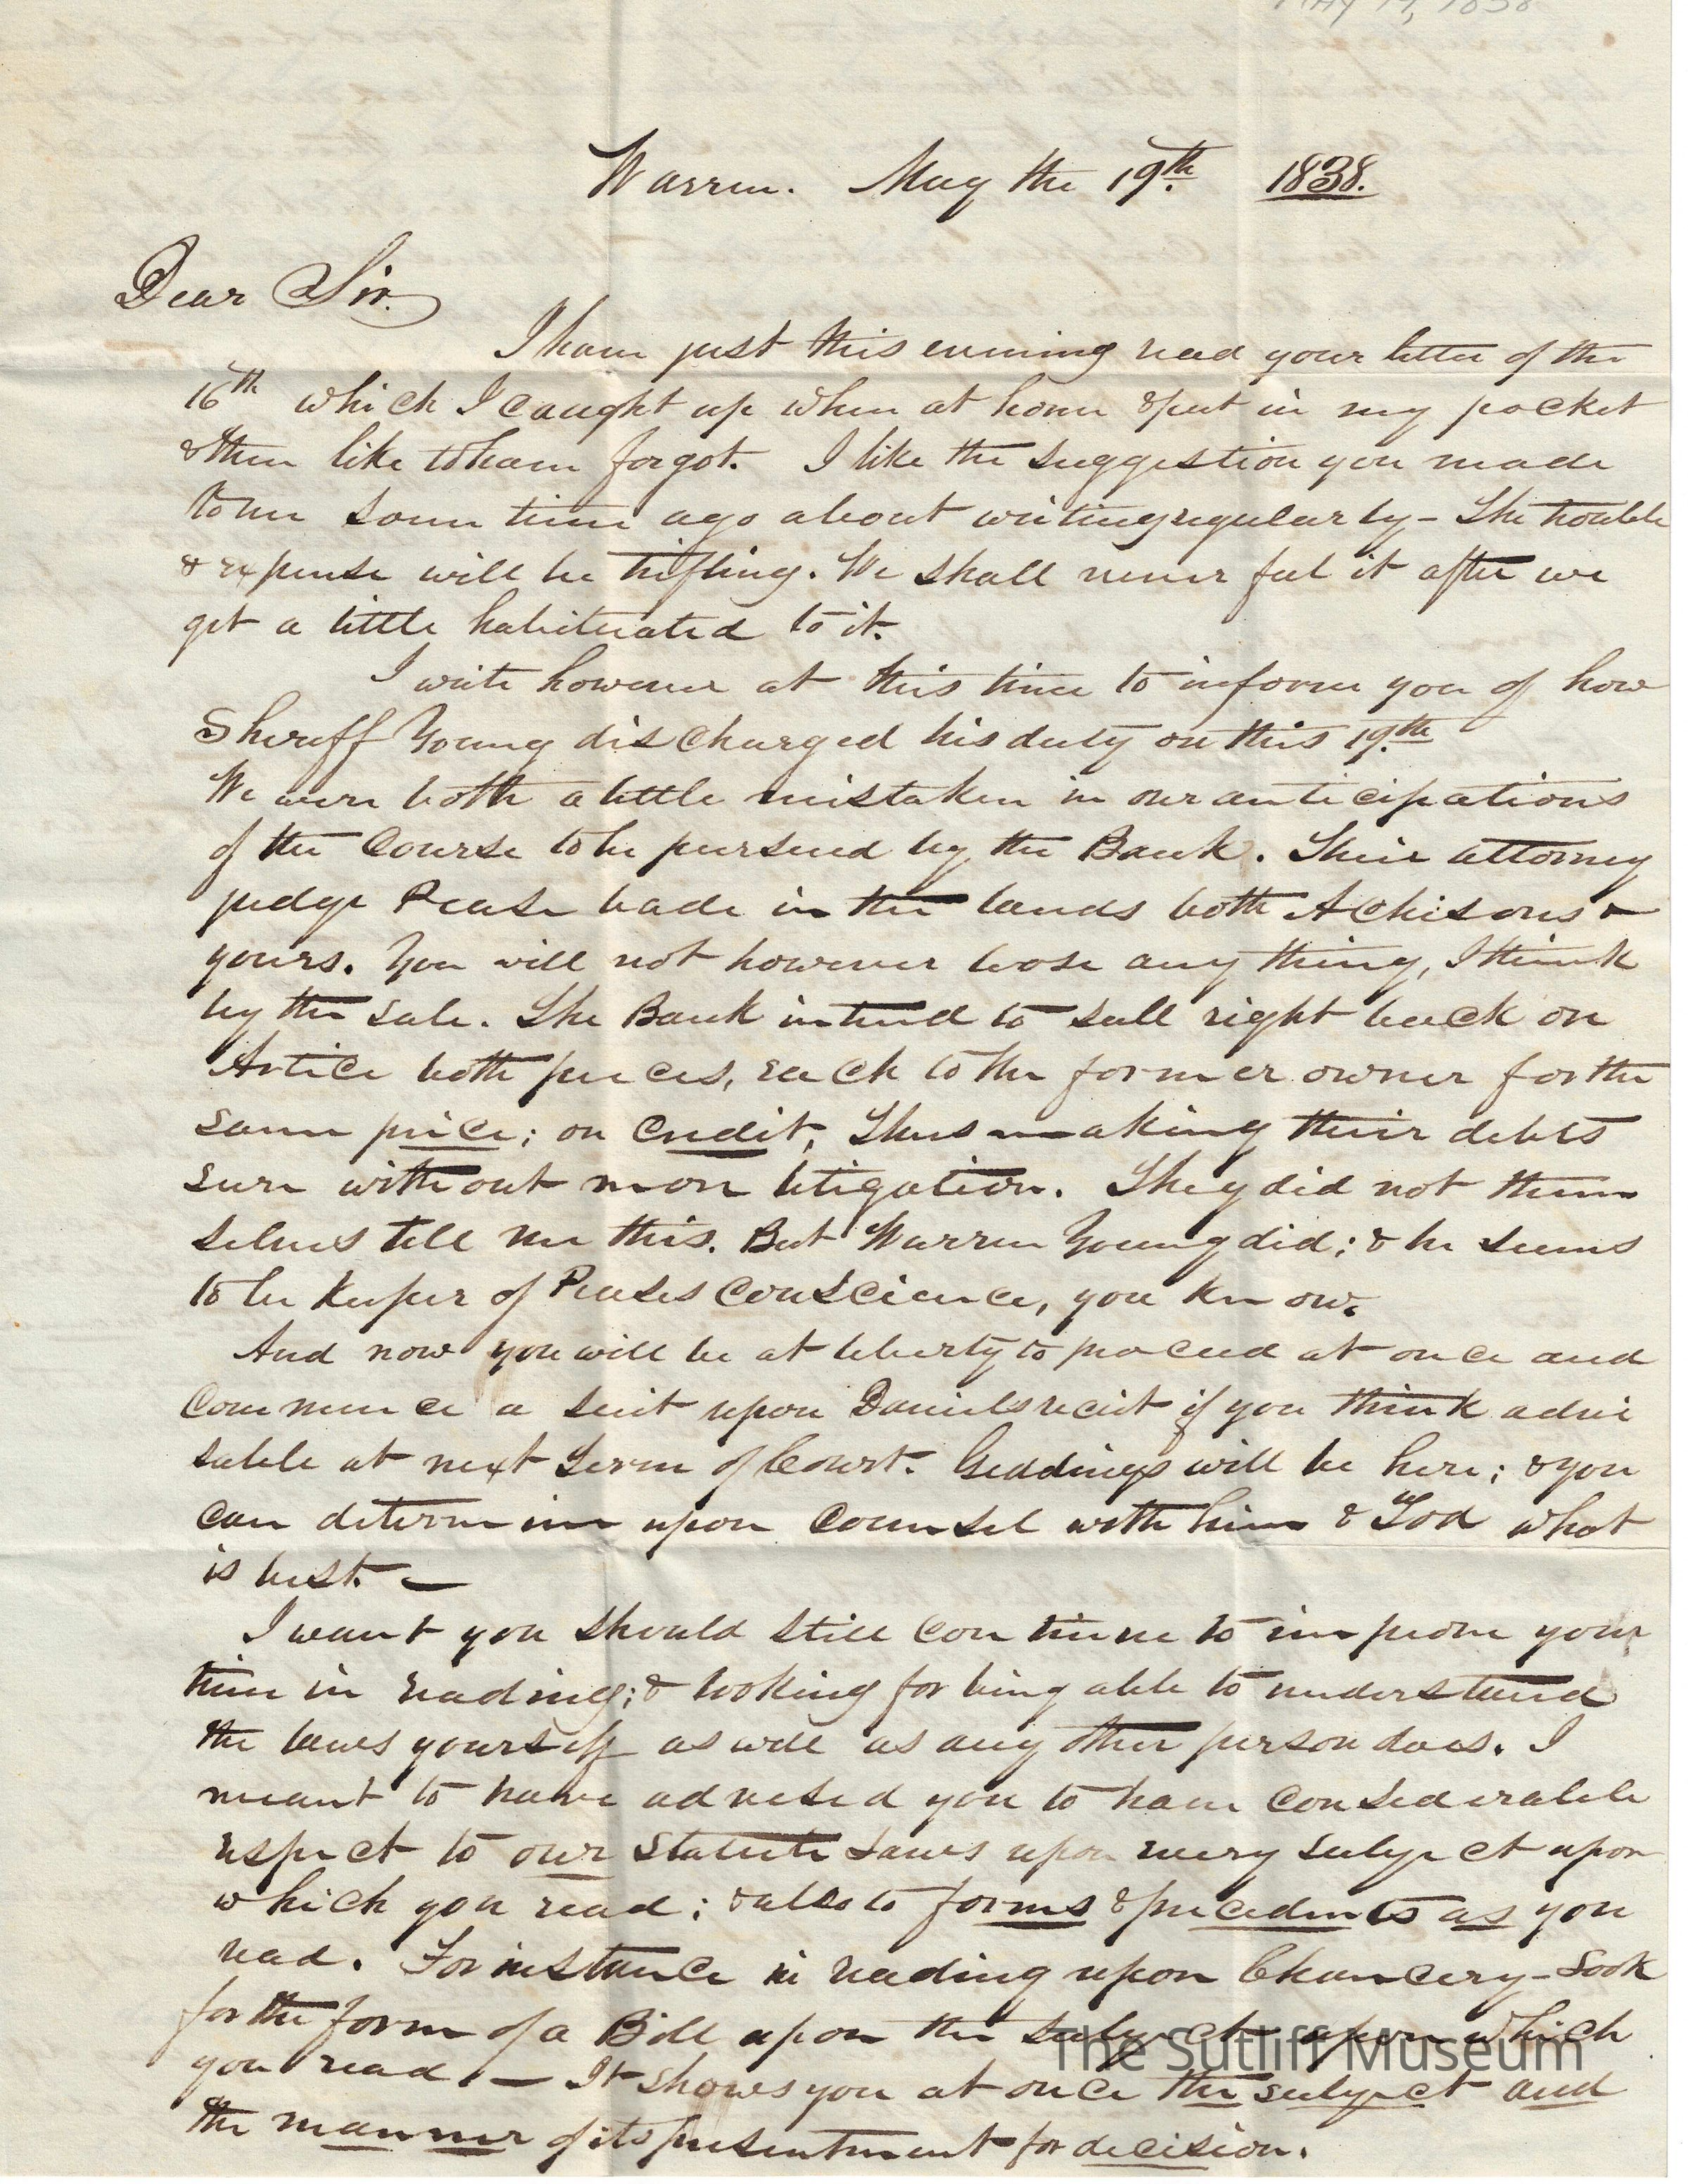 MAY 19, 1838
Warren. May the 19th. 1838.
Dear Sir.
I have just this evening read your letter of the
16th which I caught up when at home & put in my pocket
& then like to have forgot. I like the suggestion you made
to me some time ago about writing regularly – The trouble
& expense will be trifling. We shall never feel it after we
get a little habituated to it.
I write however at this time to inform you of how
Sheriff Young discharged his duty on this 19th.
We were both a little mistaken in our anticipations
of the course to be pursued by the Bank. Their attorney
judge Pease bade in the lands both Achisons &
yours. You will not however loose any thing, I think
by the sale. The Bank intend to sell right back on
Artice both pieces, each to the former owner for the
same price; on credit, Thus making their debts
sure without more litigation. They did not them
selves tell me this. But Warren Young did; & he seems
to be keeper of Peases conscience, you know.
And now you will be at liberty to proceed at once and
commence a suit upon Daniels reciet if you think advi
sable at next Term of Court. Giddings will be here; & you
can determine upon counsel with him & Tod what
is best. –
I want you should still continue to improve your
time in reading; & looking for being able to understand
the laws yourself as well as any other person does. I
meant to have advised you to have considerable
respect to our Statute Laws upon every subject upon
which you read; & also to forms & precedents as you
read. For instance in reading upon Chancery – Look
for the form of a Bill upon the subject upon which
you read. – It shows you at once the subject and
the manner of its presentment for decision.
The Sutliff Museum